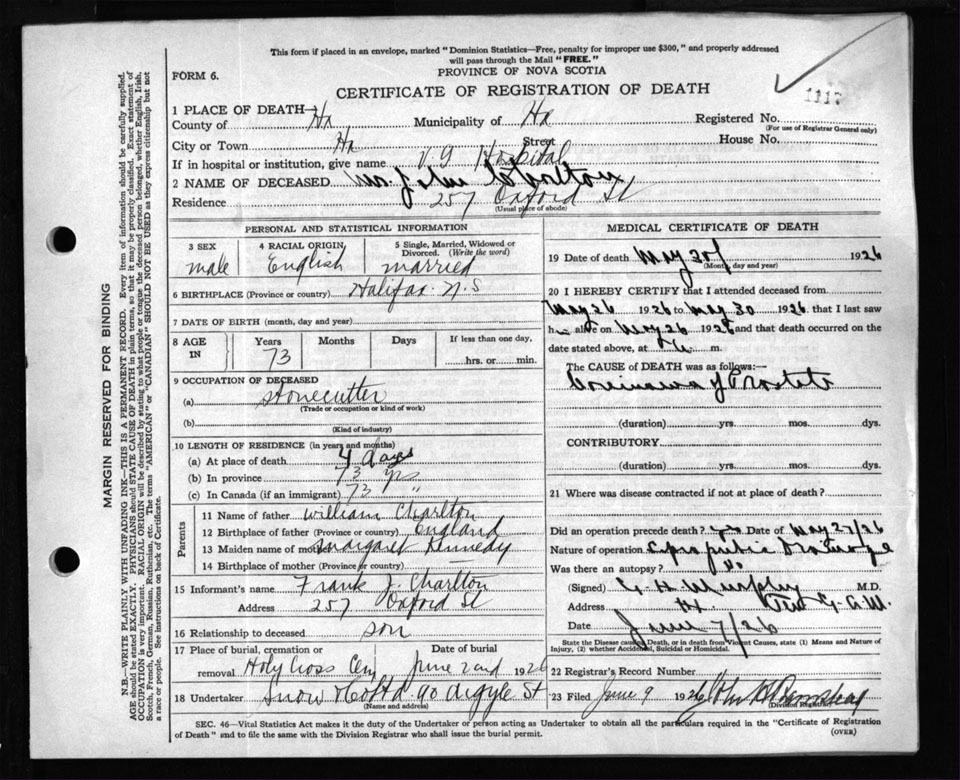 This form if placed in an envelope, marked "Dominion Statistics—Free, penalty for improper use $300," and properly addressed
will pass through the Mail "FREE."
FORM 6.
PROVINCE OF NOVA SCOTIA
CERTIFICATE OF REGISTRATION OF DEATH
1 PLACE OF DEATH—
County of Hx Municipality of Hx Registered No.
(For use of Registrar General only)
City or Town Hx Street House No.
If in hospital or institution, give name V. G Hospital
2 NAME OF DECEASED Mr. John Charlton
Residence 257 Oxford St
(Usual place of abode)
PERSONAL AND STATISTICAL INFORMATION
3 SEX male
4 RACIAL ORIGIN English
5 Single, Married, Widowed or Divorced. (Write the word) married
6 BIRTHPLACE (Province or country) Halifax N.S
7 DATE OF BIRTH (month, day and year)
8 AGE IN Years 73 Months Days If less than one day, hrs. or min.
9 OCCUPATION OF DECEASED
(a) Stonecutter
(Trade or occupation or kind of work)
(b)
(Kind of industry)
10 LENGTH OF RESIDENCE (in years and months)
(a) At place of death 4 days
(b) In province 73 yrs
(c) In Canada (if an immigrant) 73 "
Parents
11 Name of father William Charlton
12 Birthplace of father (Province or country) England
13 Maiden name of mother Margaret Kennedy
14 Birthplace of mother (Province or country)
15 Informant's name Frank J. Charlton
Address 257 Oxford St
16 Relationship to deceased son
17 Place of burial, cremation or removal Holy Cross Cem
Date of burial June 2nd 1926
18 Undertaker Snow & Co Ltd 90 Argyle St
(Name and address)
MEDICAL CERTIFICATE OF DEATH
19 Date of death May 30 1926
(Month, day and year)
20 I HEREBY CERTIFY that I attended deceased from
May 26 1926 to May 30 1926 that I last saw
h alive on May 26 1926 and that death occurred on
date stated above, at m.
The CAUSE OF DEATH was as follows:—
Carcinoma of Prostate
(duration) yrs. mos. dys.
CONTRIBUTORY
(duration) yrs. mos. dys.
21 Where was disease contracted if not at place of death?
Did an operation precede death? yes Date of May 27/26
Nature of operation Suprapubic Drainage
Was there an autopsy? No
(Signed) G. H. Murphy M.D.
Address Hx
Date June 7/26
State the Disease causing Death, or in death from Violent Causes, state (1) Means and Nature of
Injury, (2) whether Accidental, Suicidal or Homicidal.
22 Registrar's Record Number
23 Filed June 9 1926 John H Barnstead
(Division Registrar)
SEC. 46—Vital Statistics Act makes it the duty of the Undertaker or person acting as Undertaker to obtain all the particulars required in the "Certificate of Registration
of Death" and to file the same with the Division Registrar who shall issue the burial permit.
(OVER)
MARGIN RESERVED FOR BINDING
N.B.—WRITE PLAINLY WITH UNFADING INK—THIS IS A PERMANENT RECORD. Every item of information should be carefully supplied.
AGE should be stated EXACTLY. PHYSICIANS should STATE CAUSE OF DEATH in plain terms, so that it may be properly classified. Exact statement of
OCCUPATION is very important. RACIAL ORIGIN will be described by stating to what people or tongue the deceased person belonged, whether English, Irish,
Scotch, French, German, Russian, Ruthenian, etc. The terms "AMERICAN" or "CANADIAN" SHOULD NOT BE USED as they express citizenship but not
a race or people. See instructions on back of Certificate.